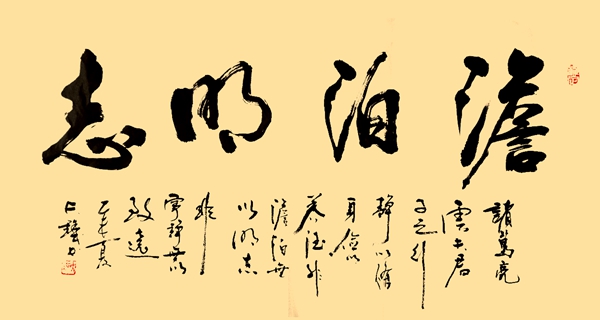 澹泊明志
諸葛亮
雲夫君
子之行
靜以修
身儉以
養德非
澹泊無
以明志
非
寧靜無以
致遠
乙未夏